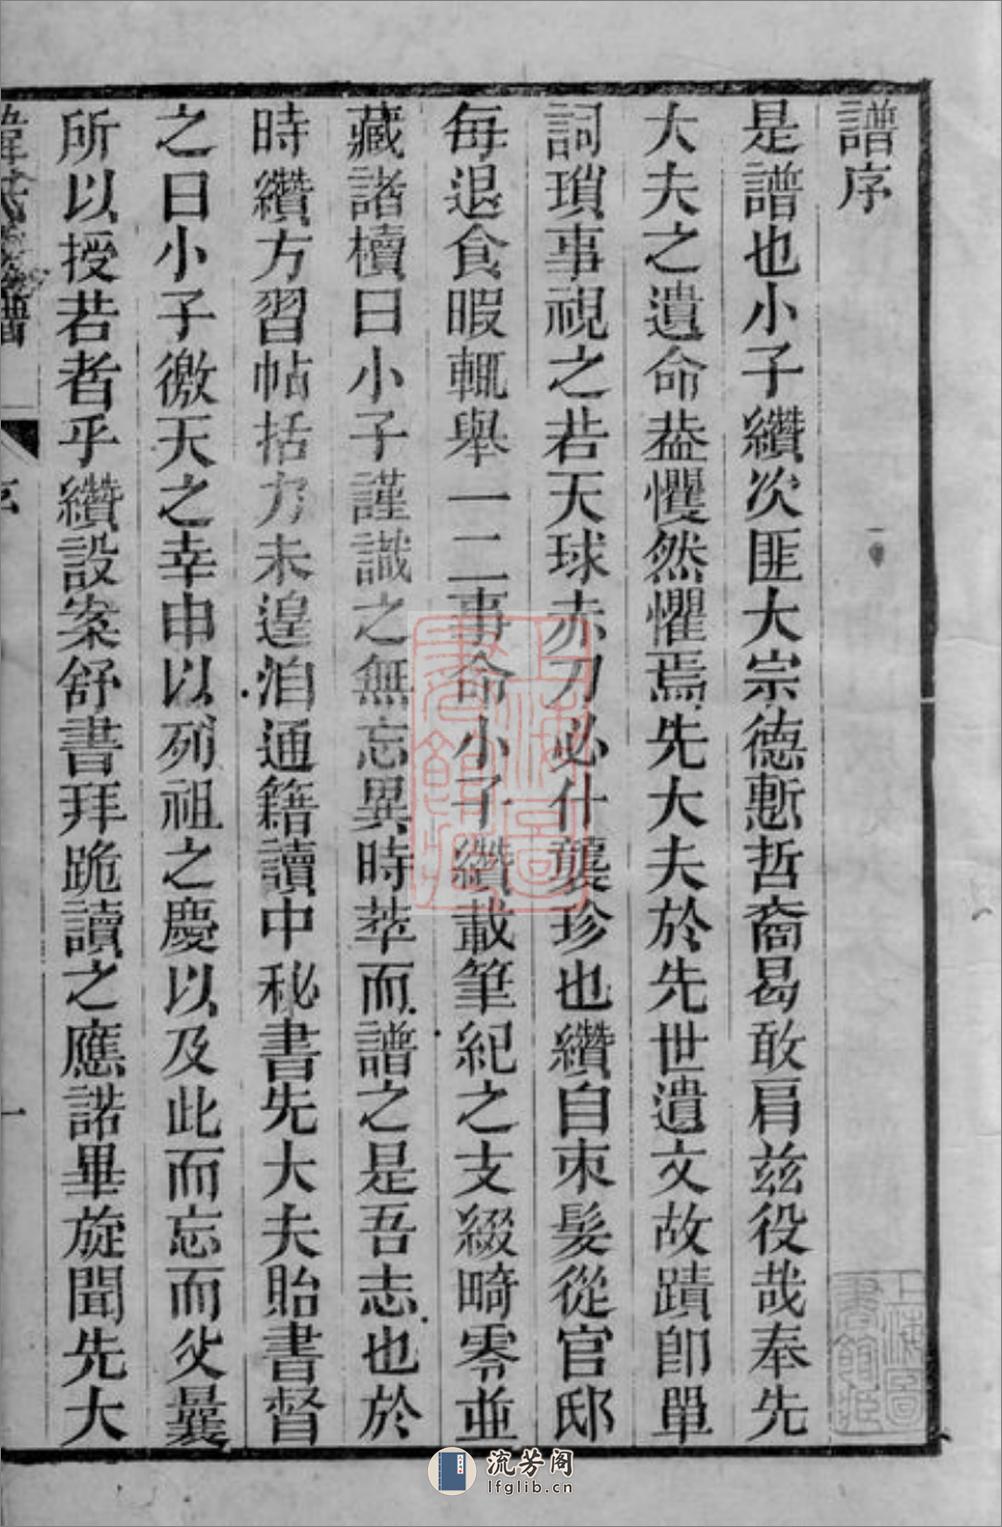 譜序
是譜也小子纘次匪大宗德慙哲裔曷敢肩茲役哉奉先
大夫之遺命葢戄然懼焉先大夫於先世遺文故蹟卽單
詞瑣事視之若天球赤刀必什襲珍也纘自朿髮從官邸
每退食暇輒舉一二事命小子纘載筆紀之支綴畸零並
藏諸櫝曰小子謹識之無忘異時萃而譜之是吾志也於
時纘方習帖括力未遑洎通籍讀中秘書先大夫貽書督
之曰小子徼天之幸申以列祖之慶以及此而忘而父曩
所以授若者乎纘設案舒書拜跪讀之應諾畢旋聞先大
譜
序
一
上海圖書館藏
上海圖書館藏
流芳阁
lfglib.cn